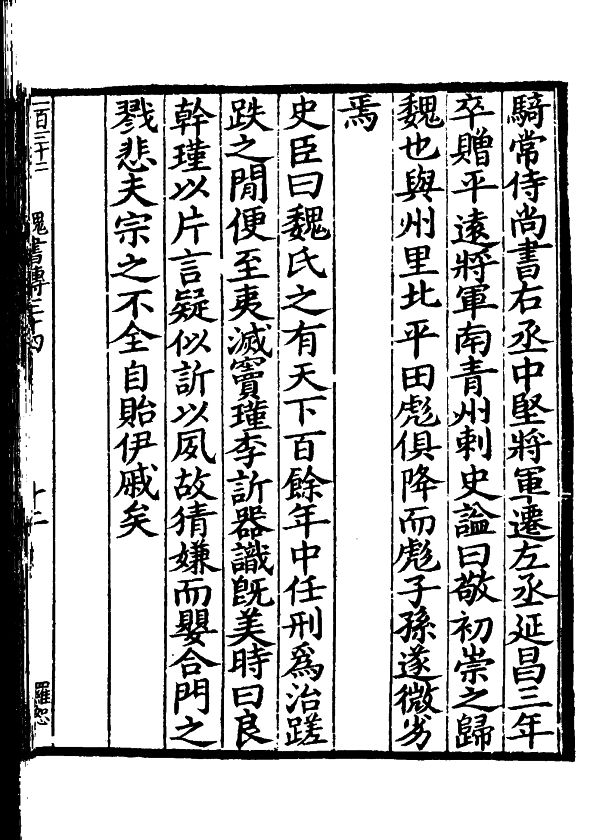 騎常侍尚書右丞中堅將軍遷左丞延昌三年
卒贈平遠將軍南青州刺史謚曰敬初崇之歸
魏也與州里北平田彪俱降而彪子孫遂微劣
焉
史臣曰魏氏之有天下百餘年中任刑爲治蹉
跌之閒便至夷滅竇瑾李訢器識旣美時曰良
幹瑾以片言疑似訢以夙故猜嫌而嬰合門之
戮悲夫宗之不全自貽伊戚矣
百三十二
魏書傳三十四
十二
羅恕